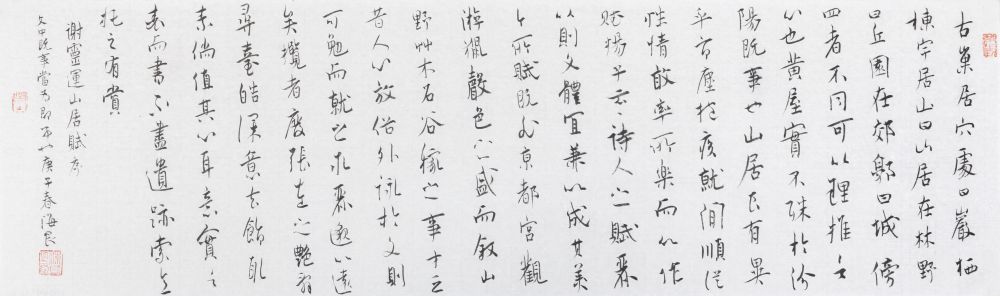 古巢居穴處曰巖栖
棟宇居山曰山居在林野
曰丘園在郊郭曰城傍
四者不同可以理推言
心也黃屋實不殊於汾
陽既事也山居良有異
乎市廛抱疾就閒順從
性情敢率所樂而以作
賦揚子云云詩人之賦麗
以則文體宜兼以成其美
今所賦既非京都宮觀
遊獵聲色之盛而敘山
野艸木石谷稼之事才乏
昔人心放俗外詠於文則
可勉而就之求麗邈以遠
矣攬者廢張左之艷辭
尋臺皓深意去飾取
素倘值其心耳意實言
表而書不盡遺跡索意
托之有賞
謝靈運山居賦序
文中既事當為即事 庚子春海